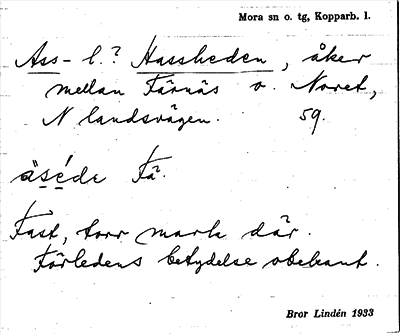 Mora sn o. tg, Kopparb. l.
Ass- l.? Hassheden, åker
mellan Färnäs o. Noret,
N landsvägen. 59.
äséde Fä.
Fast, torr mark där.
Förledens betydelse obekant.
Bror Lindén 1933